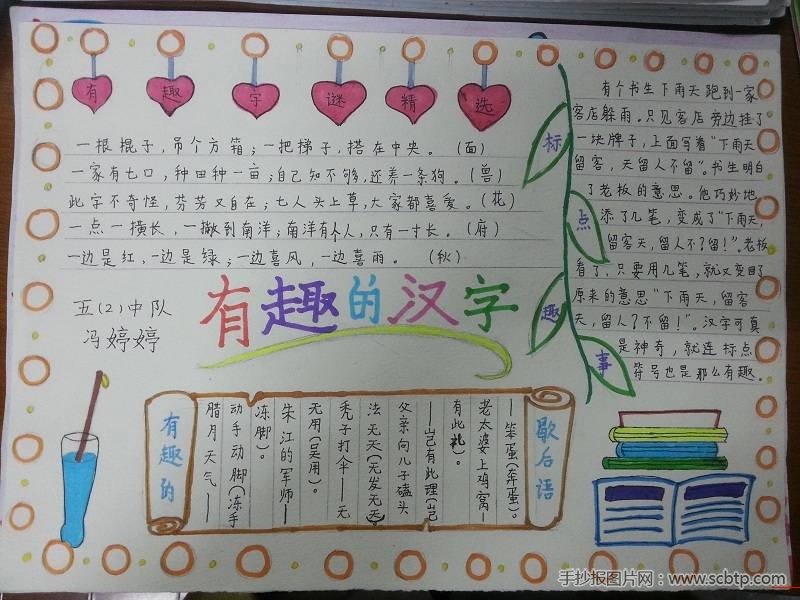 有趣字谜精选
一根棍子，吊个方箱；一把梯子，搭在中央。（面）
一家有七口，种田种一亩；自己知不够，还养一条狗。（兽）
此字不奇怪，芬芳又自在；七人头上草，大家都喜爱。（花）
一点一横长，一撇到南洋；南洋有个人，只有一寸长。（府）
一边是红，一边是绿；一边喜风，一边喜雨。（秋）
标点趣事
有个书生下雨天跑到一家
客店躲雨。只见客店旁边挂了
一块牌子，上面写着“下雨天
留客，天留人不留”。书生明白
了老板的意思。他巧妙地
添了几笔，变成了“下雨天，
留客天，留人不？留！”。老板
看了，只要用几笔，就又变回了
原来的意思“下雨天，留客
天，留人？不留！”。汉字可真
是神奇，就连标点
符号也是那么有趣。
有趣的汉字
五（2）中队
冯婷婷
有趣的
腊月天气——
动手动脚（冻手
冻脚）。
朱江的军师—
无用（吴用）。
秃子打伞——无
法无天（无发无天）。
父亲向儿子磕头
——岂有此理（岂
有此礼）。
老太婆上鸡窝—
—笨蛋（奔蛋）。
歇后语
手抄报图片网：www.scbtp.com